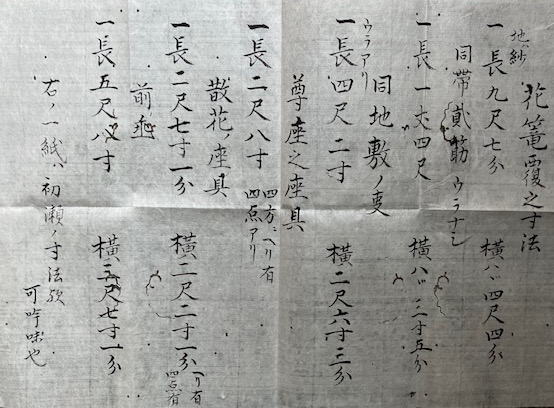 花篭覆之寸法
地ハ紗
一長九尺七分 横ハヾ四尺四分
同帯貳筋 ウラナシ
一長一丈四尺 横ハヾ二寸五分
同地敷ノ叓
ウラアリ
一長四尺二寸 横二尺六寸三分
尊座之座具
一長二尺八寸 四方ニヘリ有
四点アリ
散花ノ座具
一長二尺七寸一分 横二尺二寸一分
ヘリ有
四点有
前垂
一長五尺八寸 横三尺七寸一分
右ノ一紙ハ初瀬ノ寸法歟
可吟味也